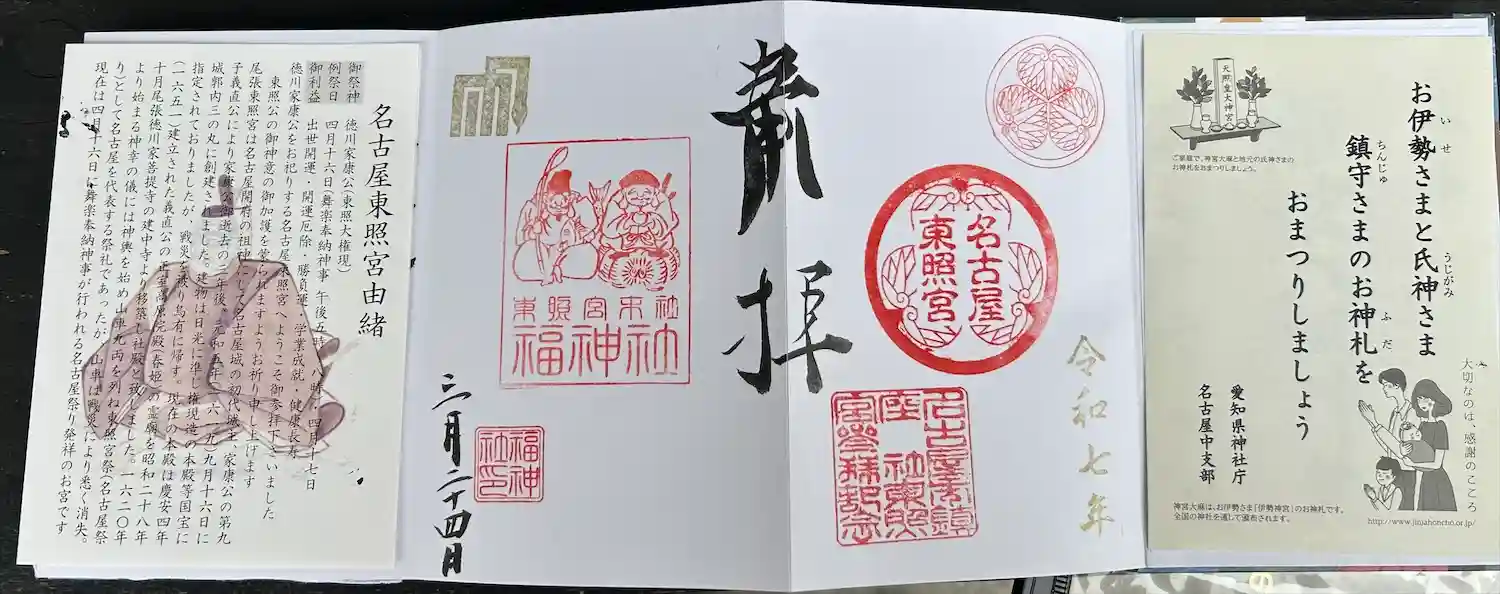 お伊勢さまと氏神さま
いせ
うじがみ
鎮守さまのお神札を
ちんじゅ
ふだ
おまつりしましょう
愛知県神社庁
名古屋中支部
天照皇大神宮
ご家庭で、神宮大麻と地元の氏神さまの
お神札をおまつりしましょう。
大切なのは、感謝のこころ
神宮大麻は、お伊勢さま「伊勢神宮」のお神札です。
全国の神社を通して頒布されます。
http://www.jinjahoncho.or.jp/
令和七年
名古屋
東照宮
宮参拝記念
拝
東照宮末社
福神社
福神
社印
三月二十四日
名古屋東照宮由緒
御祭神 徳川家康公(東照大権現)
例祭日 四月十六日(舞楽奉納神事 午後五時~八時)・四月十七日
御利益 出世開運・開運厄除・勝負運・学業成就・健康長寿
徳川家康公をお祀りする名古屋東照宮へようこそ御参拝下さいました
東照公の御神意の御加護を蒙られますようお祈り申し上げます
尾張東照宮は名古屋開府の祖神にして名古屋城の初代城主、家康公の第九
子義直公により家康公御逝去の三年後、元和五年(一六一九)九月十六日に
城郭内三の丸に創建されました。建物は日光に準じ権現造の本殿等国宝に
指定されておりましたが、戦災を被り烏有に帰す。現在の本殿は慶安四年
(一六五一)建立された義直公の正室高原院殿(春姫)の霊廟を昭和二十八年
十月尾張徳川家菩提寺の建中寺より移築し社殿と致しました。一六二〇年
より始まる神幸の儀には神輿を始め山車九両を列ね東照宮祭(名古屋祭
り)として名古屋を代表する祭礼であったが、山車は戦災により悉く消失。
現在は四月十六日に舞楽奉納神事が行われる名古屋祭り発祥のお宮です